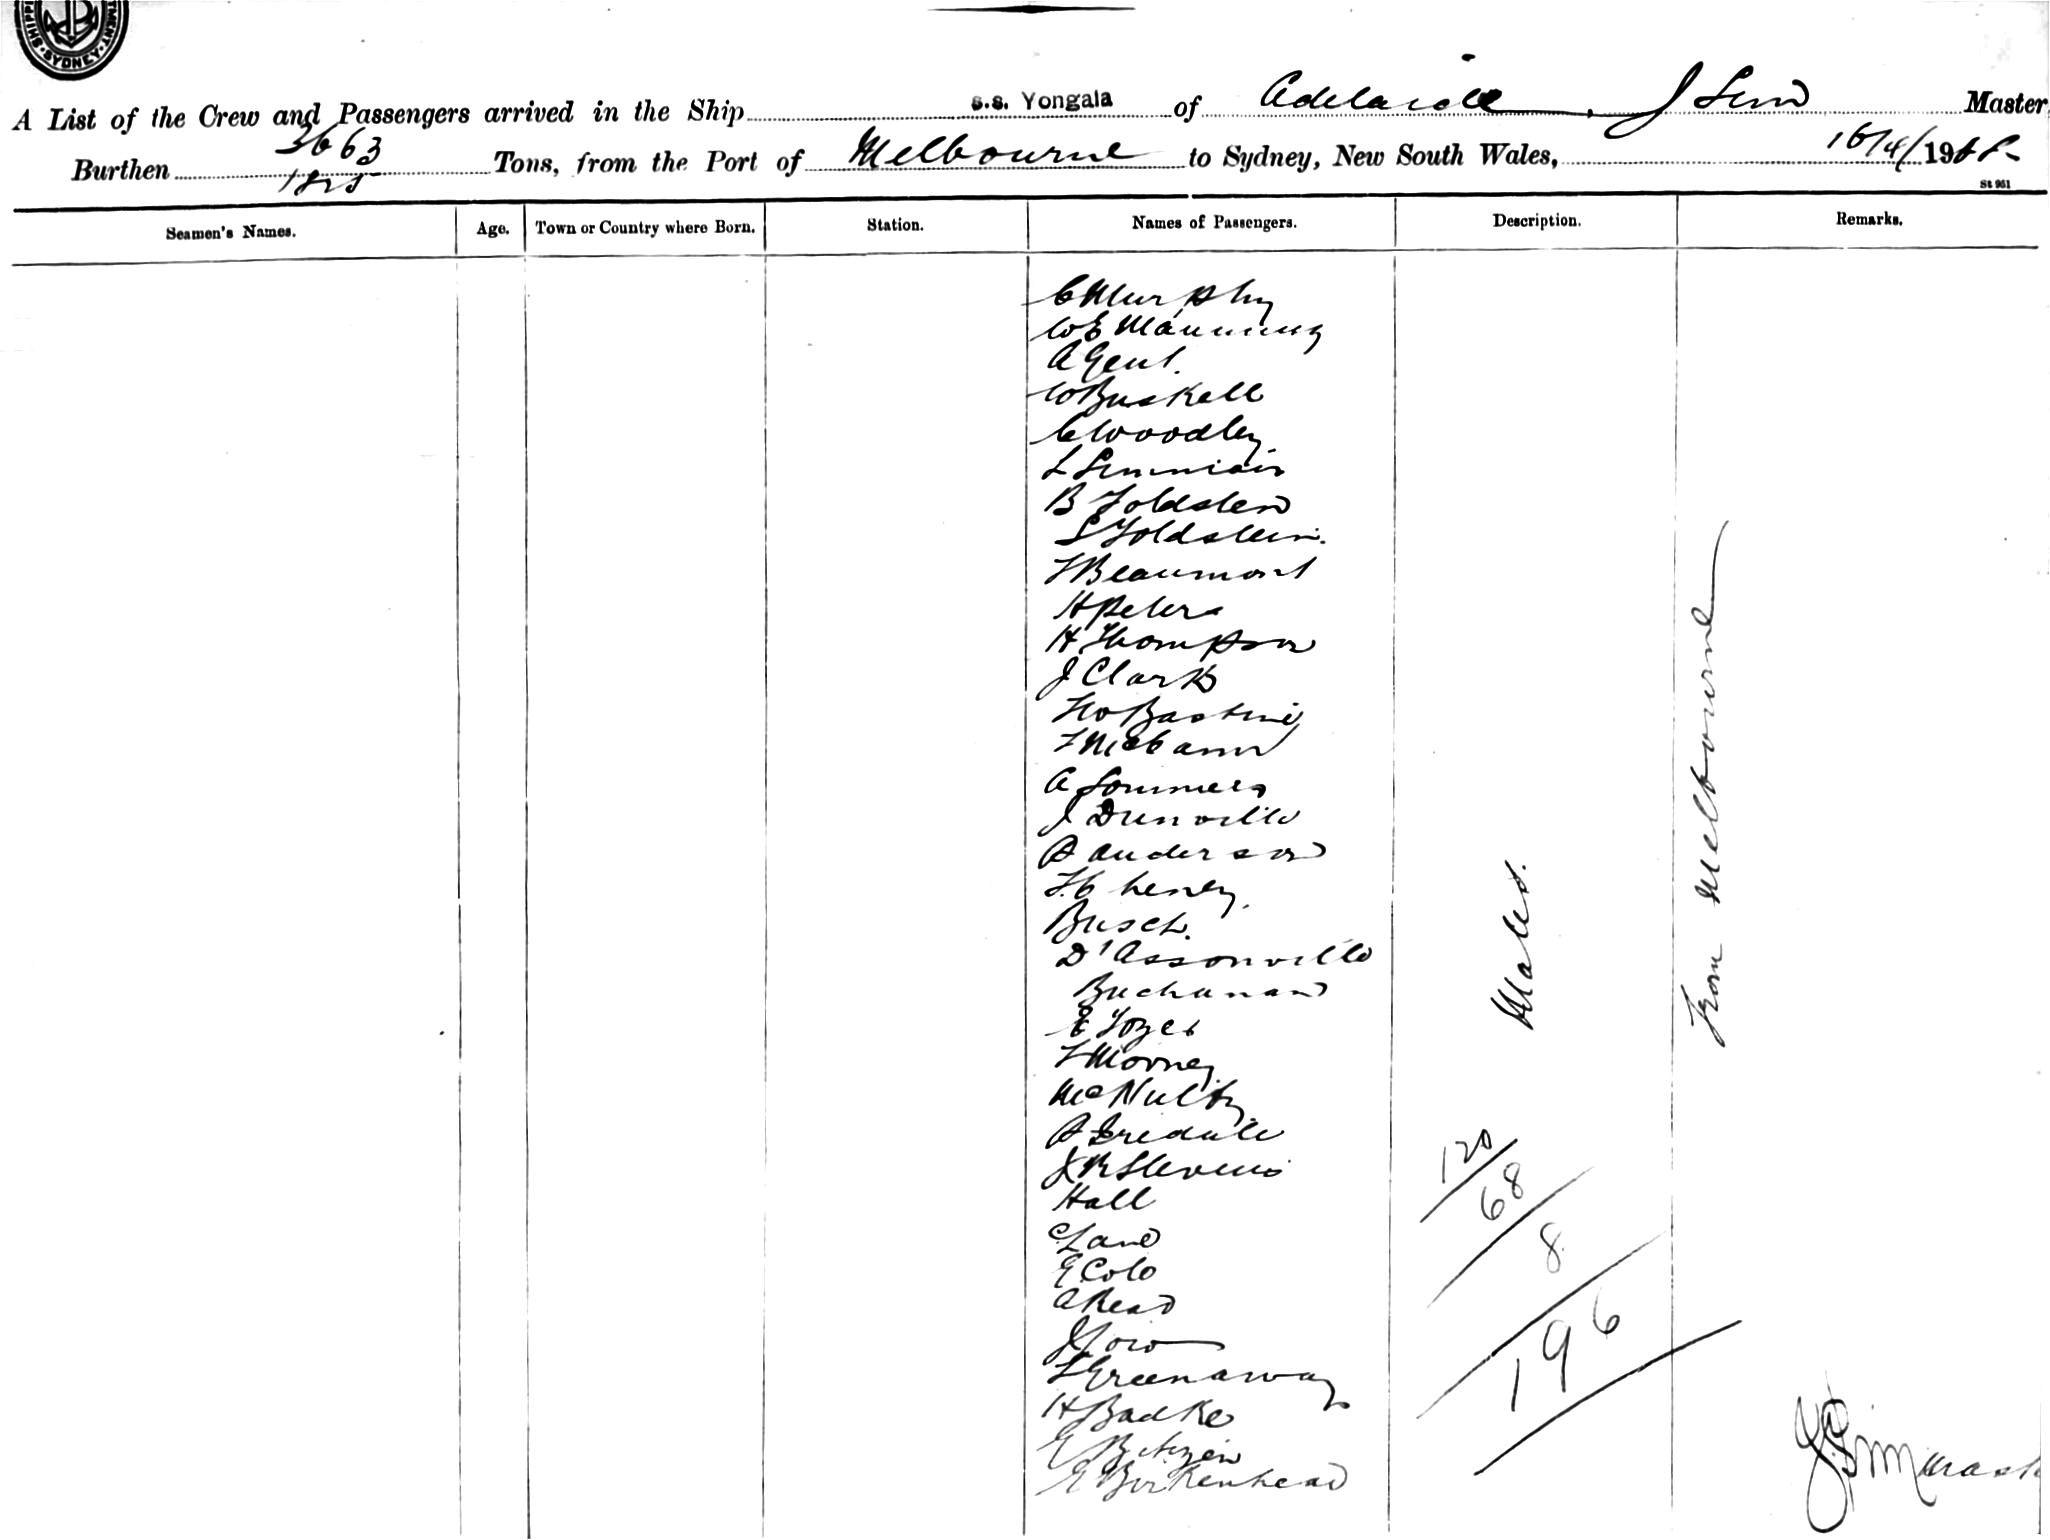 SHIPPI
SYDNEY
TMENT
A List of the Crew and Passengers arrived in the Ship s.s. Yongala of Adelaide, J Sim Master,
Burthen 3663 Tons, from the Port of Melbourne to Sydney, New South Wales, 16/4/190
1825
St 951
Seamen's Names. Age. Town or Country where Born. Station. Names of Passengers. Description. Remarks.
C Murphy
W E Manning
A Gent.
W Buskell
C Woodley
L
B Goldstein
S Goldstein.
F Beaumont
H Peters
H Thompson
J Clark
F W Bastin
F McCann
A Sommers
J Dunville
A Anderson
F. Cheney.
Busch.
D'Assonville
Buchanan
E Tozer
F Morney
McNulty
A Iredale
J R Stevens
Hall
C Lane
E Cole
A Read
J
L Greenaway
H Badke
E
E Birkenhead
Males.
From Melbourne
120
68
8
196
J Sim Mast